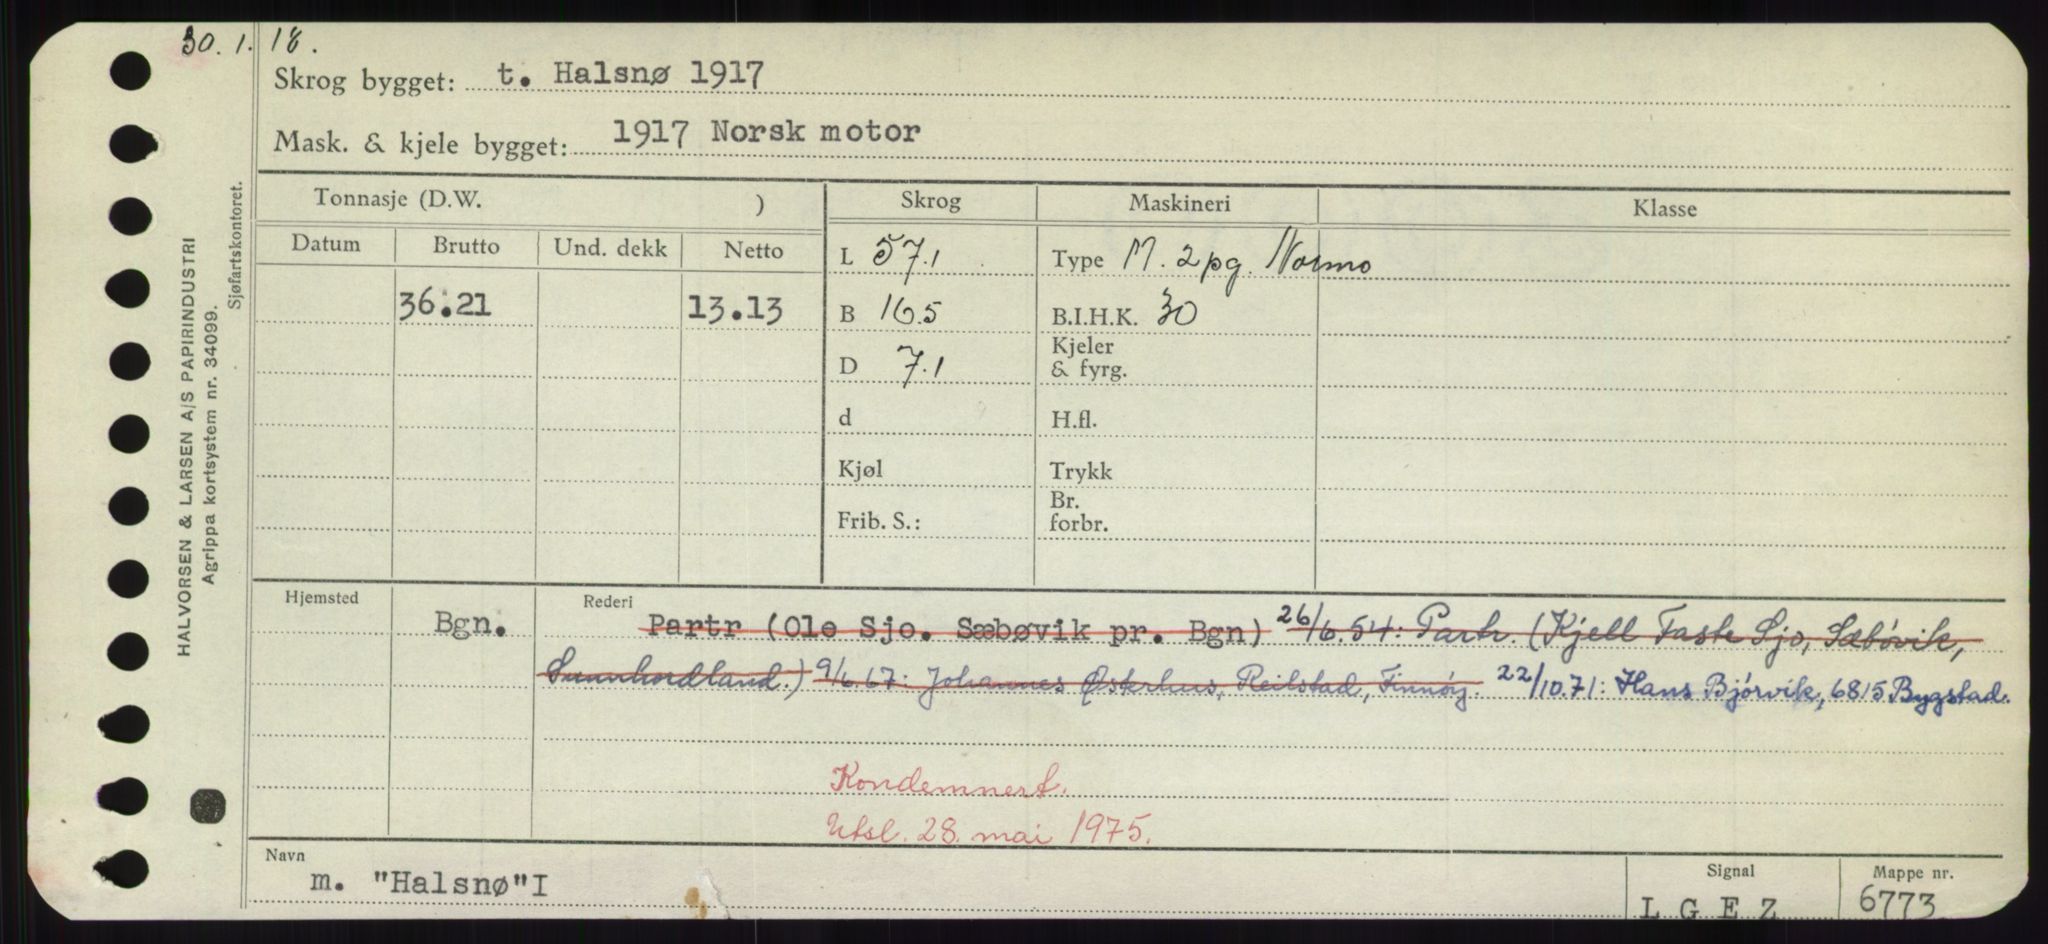 30.1.18.
Skrog bygget: t. Halsnø 1917
Mask. & kjele bygget: 1917 Norsk motor
HALVORSEN & LARSEN A/S PAPIRINDUSTRI
Agrippa kortsystem nr. 34099.
Sjøfartskontoret.
Tonnasje (D.W. ) Skrog Maskineri Klasse
Datum Brutto Und. dekk Netto
L 57.1 Type M. 2pg. Normo
36.21 13.13 B 16.5 B.I.H.K. 30
D 7.1 Kjeler & fyrg.
d H.fl.
Kjøl Trykk
Frib. S.: Br. forbr.
Hjemsted Rederi
Bgn. Partr (Ole Sjo. Sæbøvik pr. Bgn) 26/6.54: Partr. (Kjell Taste Sjo, Sæbövik,
Sunnhordland.) 9/6.67: Johannes Østerhus, Reilstad, Finnöy. 22/10.71: Hans Bjórvik, 6815 Bygstad.
Kondemnert.
Utsl. 28. mai 1975.
Navn Signal Mappe nr.
m. "Halsnø"I L G E Z 6773